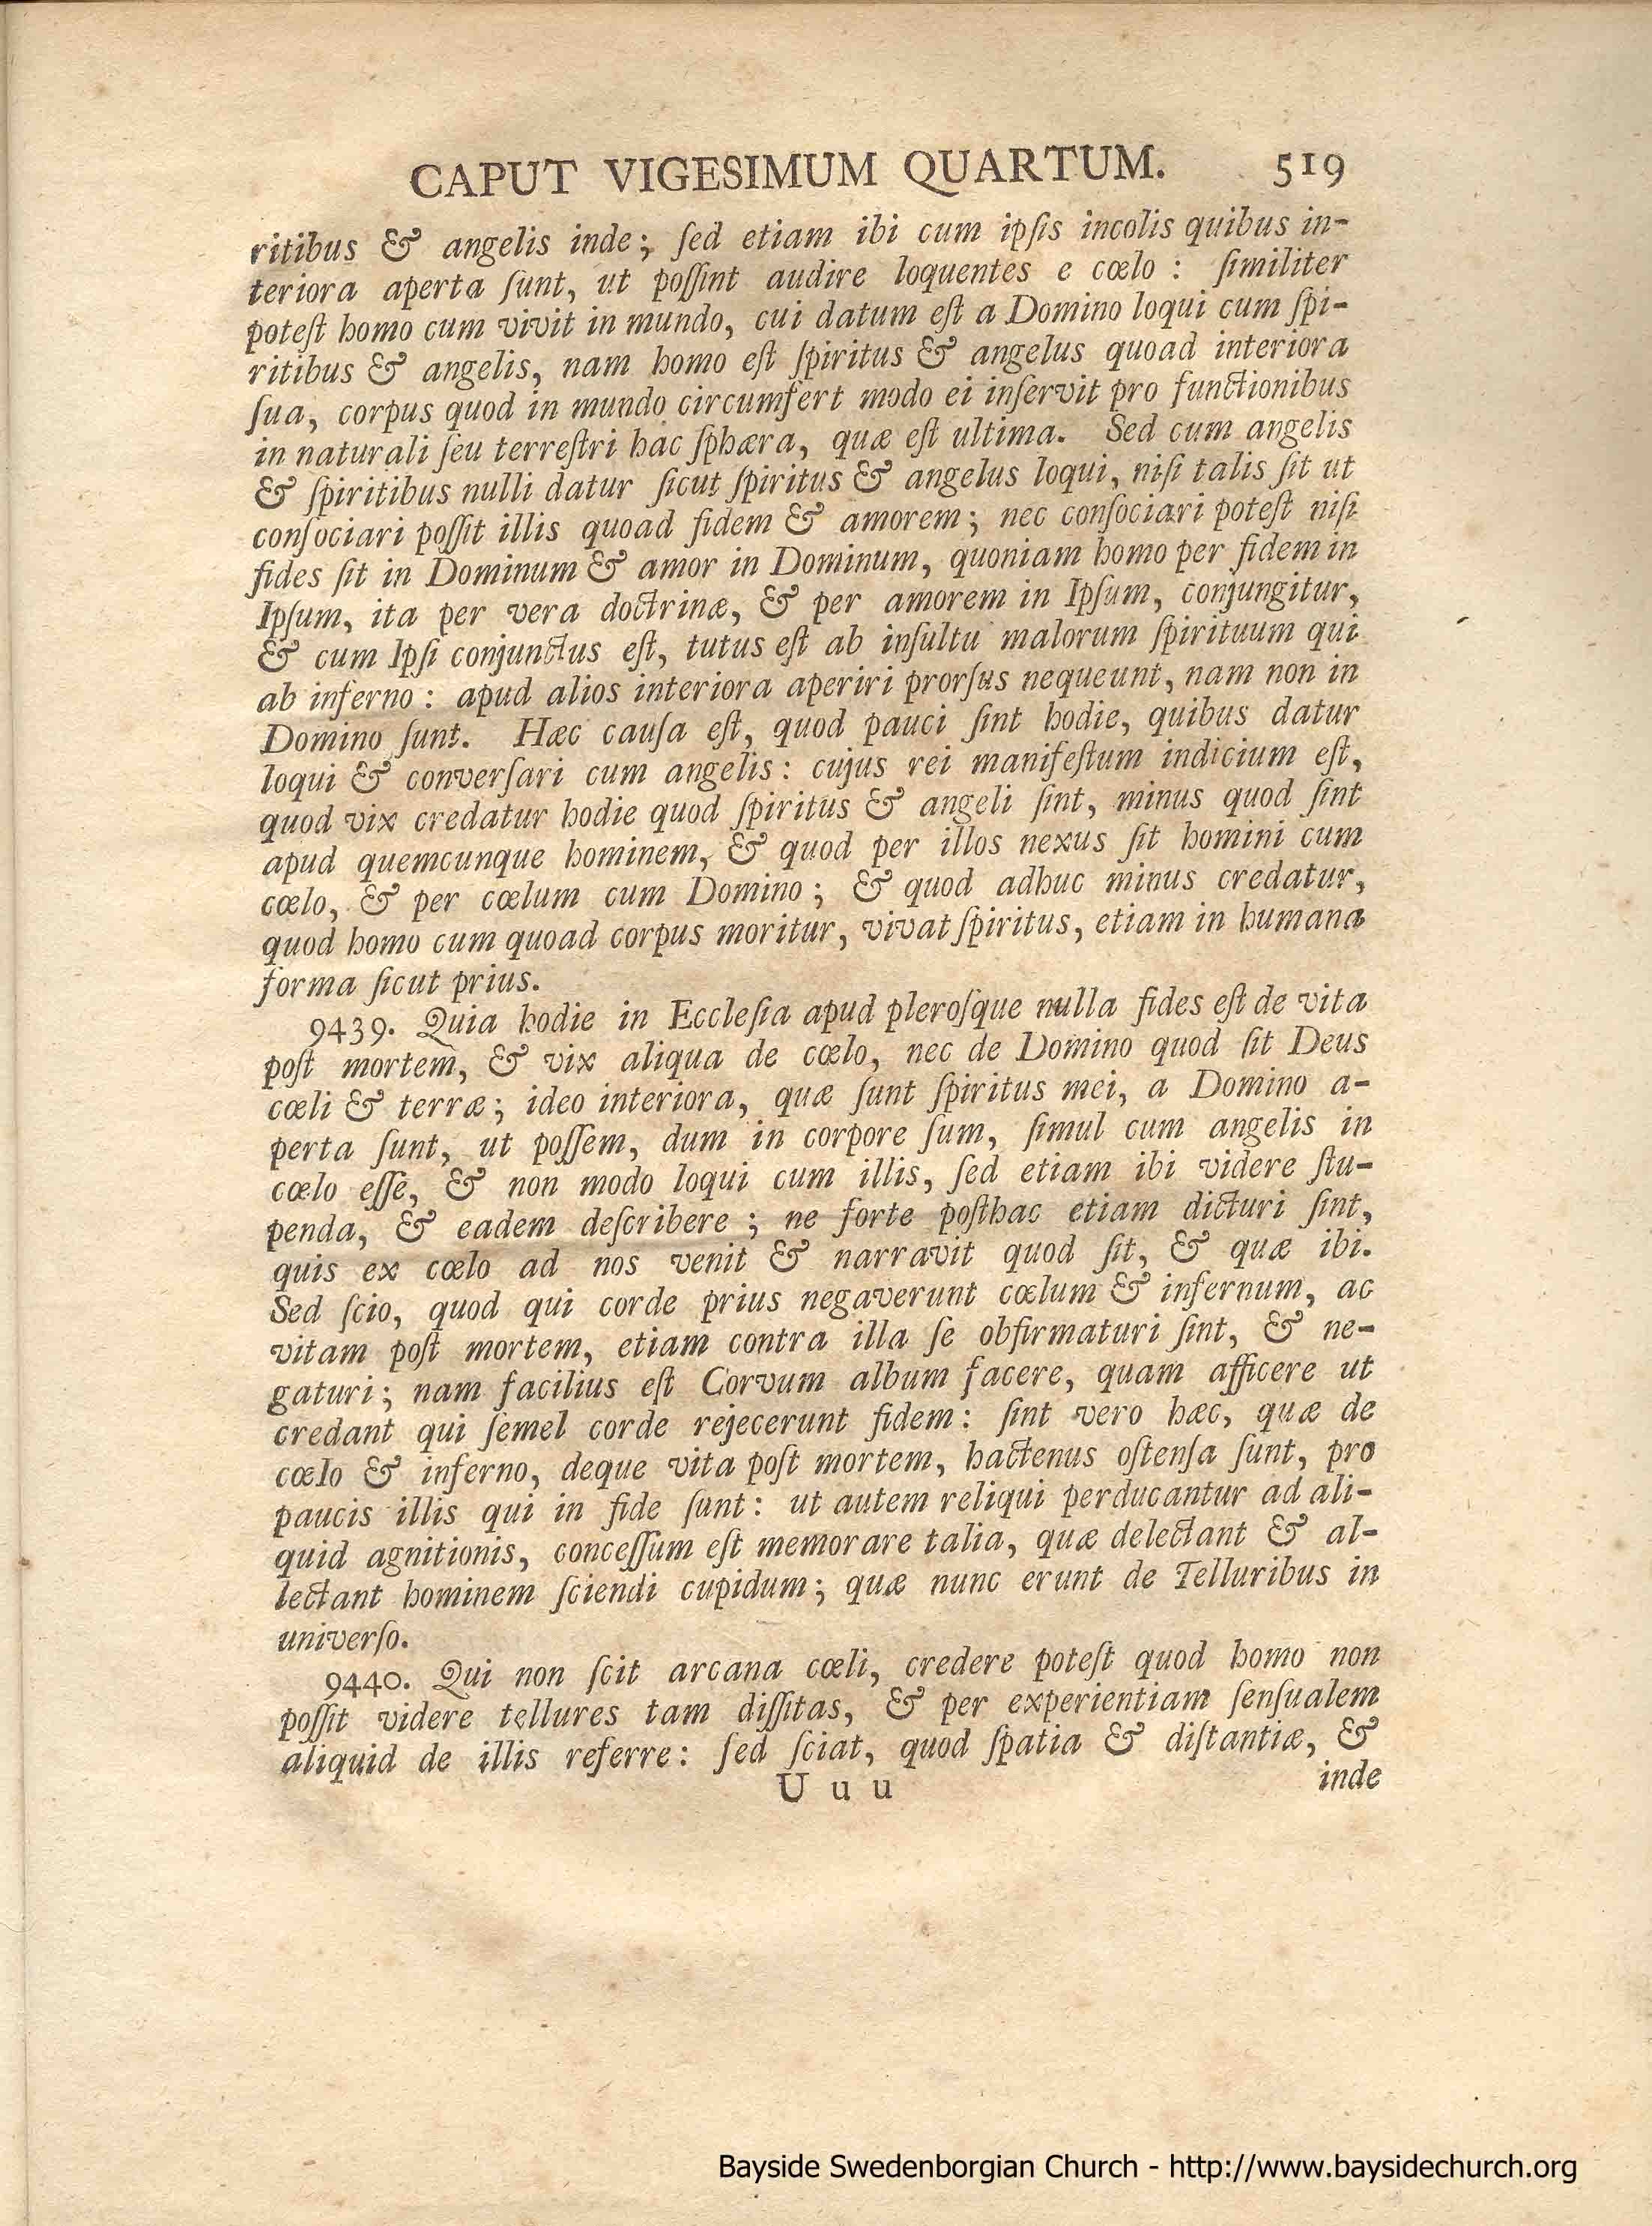 CAPUT VIGESIMUM QUARTUM. 519
ritibus & angelis inde; ſed etiam ibi cum ipſis incolis quibus in-
teriora aperta ſunt, ut poſſint audire loquentes e cœlo : ſimiliter
poteſt homo cum vivit in mundo, cui datum eſt a Domino loqui cum ſpi-
ritibus & angelis, nam homo eſt ſpiritus & angelus quoad interiora
ſua, corpus quod in mundo circumfert modo ei inſervit pro functionibus
in naturali ſeu terreſtri hac ſphæra, quæ eſt ultima. Sed cum angelis
& ſpiritibus nulli datur ſicut ſpiritus & angelus loqui, niſi talis ſit ut
conſociari poſſit illis quoad fidem & amorem; nec conſociari poteſt niſi
fides ſit in Dominum & amor in Dominum, quoniam homo per fidem in
Ipſum, ita per vera doctrinæ, & per amorem in Ipſum, conjungitur,
& cum Ipſi conjunctus eſt, tutus eſt ab inſultu malorum ſpirituum qui
ab inferno : apud alios interiora aperiri prorſus nequeunt, nam non in
Domino ſunt. Hæc cauſa eſt, quod pauci ſint hodie, quibus datur
loqui & converſari cum angelis : cujus rei manifeſtum indicium eſt,
quod vix credatur hodie quod ſpiritus & angeli ſint, minus quod ſint
apud quemcunque hominem, & quod per illos nexus ſit homini cum
cœlo, & per cœlum cum Domino ; & quod adhuc minus credatur,
quod homo cum quoad corpus moritur, vivat ſpiritus, etiam in humana
forma ſicut prius.
9439. Quia hodie in Eccleſia apud pleroſque nulla fides eſt de vita
poſt mortem, & vix aliqua de cœlo, nec de Domino quod ſit Deus
cœli & terræ; ideo interiora, quæ ſunt ſpiritus mei, a Domino a-
perta ſunt, ut poſſem, dum in corpore ſum, ſimul cum angelis in
cœlo eſſe, & non modo loqui cum illis, ſed etiam ibi videre ſtu-
penda, & eadem deſcribere ; ne forte poſthac etiam dicturi ſint,
quis ex cœlo ad nos venit & narravit quod ſit, & quæ ibi.
Sed ſcio, quod qui corde prius negaverunt cœlum & infernum, ac
vitam poſt mortem, etiam contra illa ſe obfirmaturi ſint, & ne-
gaturi; nam facilius eſt Corvum album facere, quam afficere ut
credant qui ſemel corde rejecerunt fidem : ſint vero hæc, quæ de
cœlo & inferno, deque vita poſt mortem, hactenus oſtenſa ſunt, pro
paucis illis qui in fide ſunt : ut autem reliqui perducantur ad ali-
quid agnitionis, conceſſum eſt memorare talia, quæ delectant & al-
lectant hominem ſciendi cupidum; quæ nunc erunt de Telluribus in
univerſo.
9440. Qui non ſcit arcana cœli, credere poteſt quod homo non
poſſit videre tellures tam diſſitas, & per experientiam ſenſualem
aliquid de illis referre : ſed ſciat, quod ſpatia & diſtantiæ, &
U u u inde
Bayside Swedenborgian Church - http://www.baysidechurch.org